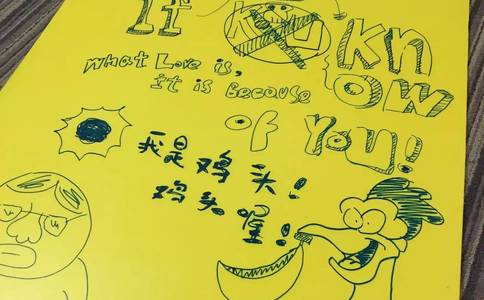 If KN
OW
what Love is,
It is Because
of You!
我是鸡头!
鸡头喔!